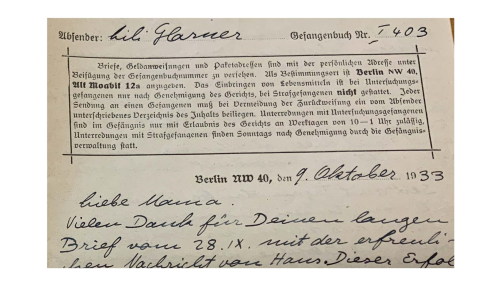 Absender: Lili Glarner Gefangenbuch Nr. I 403
Briefe, Geldanweisungen und Paketadressen sind mit der persönlichen Adresse unter
Beifügung der Gefangenbuchnummer zu versehen. Als Bestimmungsort ist Berlin NW 40,
Alt Moabit 12a anzugeben. Das Einbringen von Lebensmitteln ist bei Untersuchungs-
gefangenen nur nach Genehmigung des Gerichts, bei Strafgefangenen nicht gestattet. Jeder
Sendung an einen Gefangenen muß bei Vermeidung der Zurückweisung ein vom Absender
unterschriebenes Verzeichnis des Inhalts beiliegen. Unterredungen mit Untersuchungsgefangenen
sind im Gefängnis nur mit Erlaubnis des Gerichts an Werktagen von 10—1 Uhr zulässig.
Unterredungen mit Strafgefangenen finden Sonntags nach Genehmigung durch die Gefängnis-
verwaltung statt.
Berlin NW 40, den 9. Oktober 1933
Liebe Mama.
Vielen Dank für Deinen langen
Brief vom 28.IX. mit der erfreuli-
chen Nachricht von Hans. Dieser